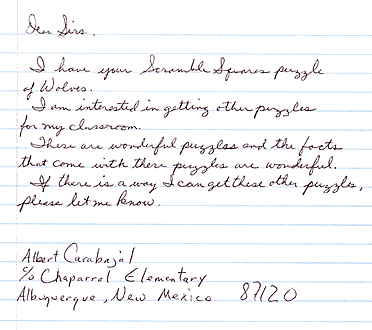 Dear Sirs.
I have your Scramble Squares puzzle
of Wolves.
I am interested in getting other puzzles
for my classroom.
These are wonderful puzzles and the facts
that come with these puzzles are wonderful.
If there is a way I can get these other puzzles,
please let me know.
Albert Carabajal
c/o Chaparral Elementary
Albuquerque, New Mexico 87120